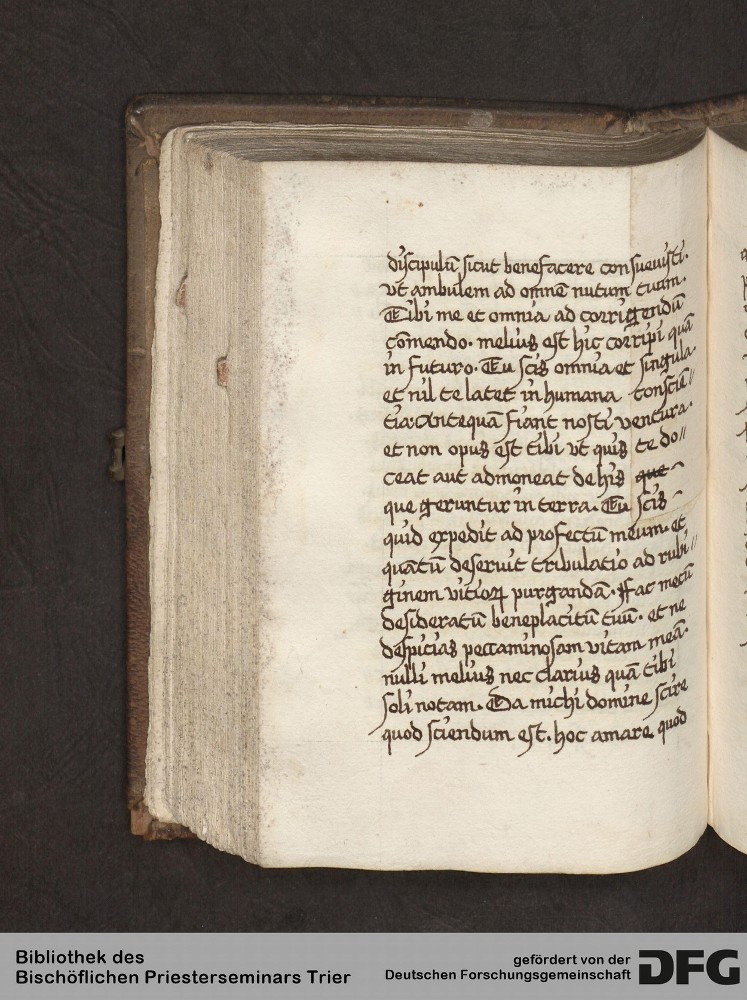 discipulū sicut benefacere consueuisti.
vt ambulem ad omnē nutum tuum.
Tibi me et omnia ad corrigendū
cōmendo. melius est hic corripi quā
in futuro. Tu scis omnia et singula.
et nil te latet in humana conscien//
tia: Anteqūa fiant nosti ventura.
et non opus est tibi vt quis te do//
ceat aut admoneat de his que
que geruntur in terra. Tu scis
quid expedit ad profectū meum. et
quātū deseruit tribulatio ad rubi//
ginem vitioꝝ purgandā. Fac mecū
desideratū beneplacitū tuū. et ne
despicias peccaminosam vitam meā.
nulli melius nec clarius quā tibi
soli notam. Da michi domine scire
quod sciendum est. hoc amare quod
Bibliothek des
Bischöflichen Priesterseminars Trier
gefördert von der
Deutschen Forschungsgemeinschaft
DFG